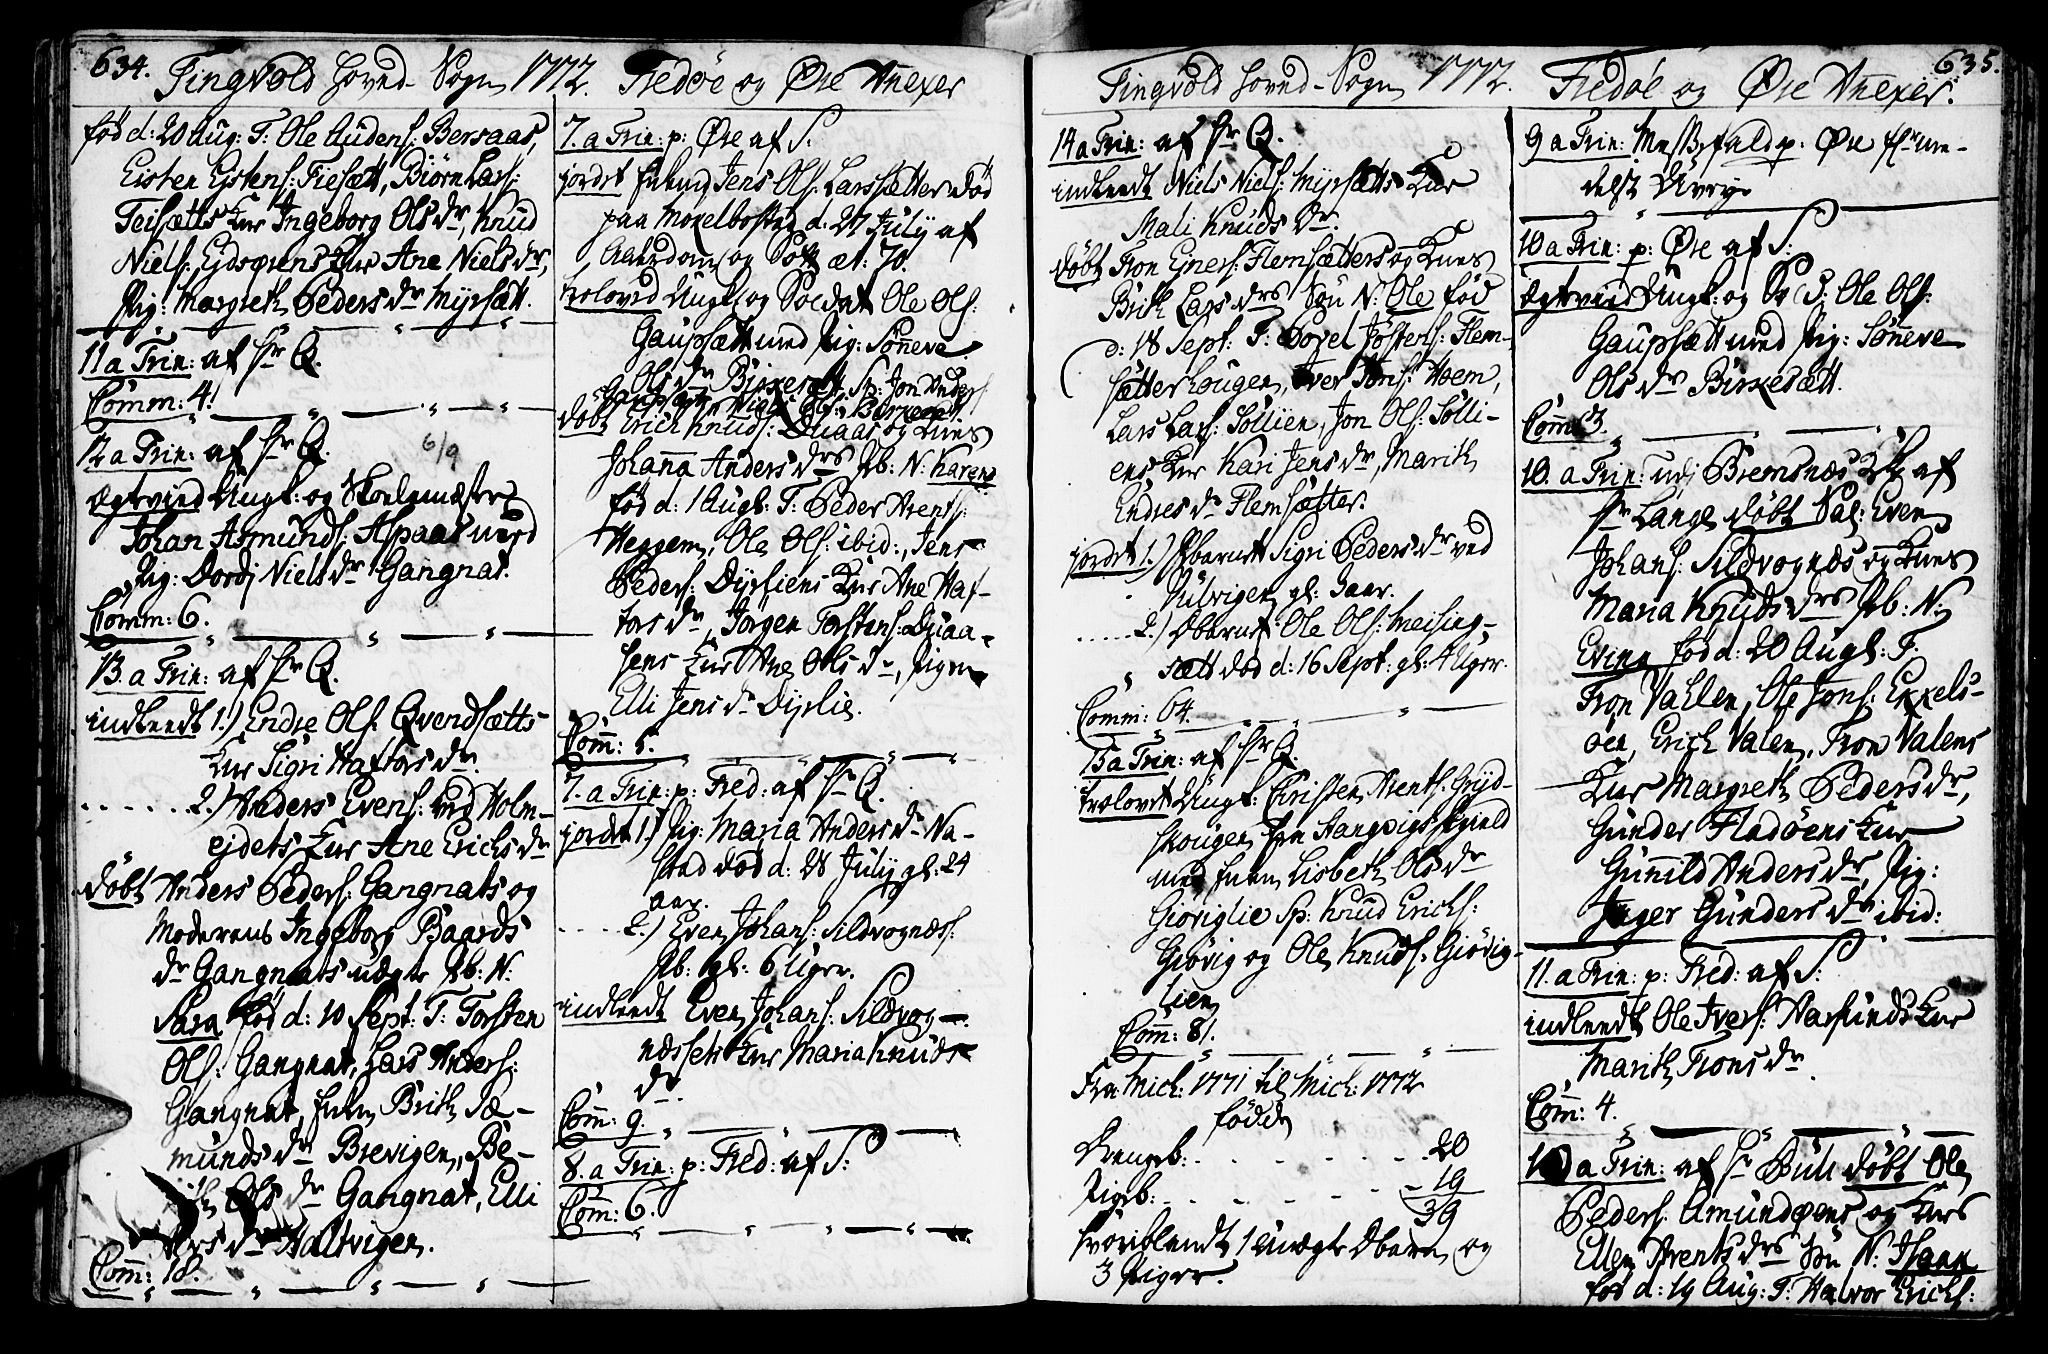 634.
Tingvold Hoved-Sogn 1772. Fredøe og Øre Anexer
fød d: 20 Aug: T: Ole Audens: Bersaas,
Eisten Estens: Fiesætt, Biørn Lars:
Teisætts Kur Ingeborg Ols dr, Knud
Niels: Ejdsørens Kur Ane Niels dr,
Pig: Margreth Peders dr Myrsætt.
11 a Trin: af Hr Q.
Comm: 4.
12 a Trin: af Hr Q. 6/9
Ægtvied Ungk: og Skolemæster
Johan Asmunds: Aspaas med
Pig: Dordj Niels dr Gangnat.
Comm: 6.
13. a Trin: af Hr Q.
indleedt 1.) Endre Ols: Qvendsætts
Kur Sigri Haftors dr.
2.) Anders Evens: ved Holm-
ejdets Kur Ane Erichs dr
døbt Anders Peders: Gangnats og
Moderens Ingeborg Baards
dr Gangnats uægte Pb: N:
Sara fød d: 10 Sept: T: Torsten
Ols: Gangnat, Lars Anders:
Gangnat, Enken Brith Sæ-
munds dr Brevigen, Be-
rith Ols dr Gangnat, Elli
Lars dr Haltvigen.
Com: 18.
7. a Trin: p: Øre af S:
jordet Enkem Jens Ols: Larssætter død
paa Moxelbostad d: 27 July af
Alderdom og Sott æt: 70.
troloved Ungk: og Soldat Ole Ols:
Gaupsætt med Pig: Sønneve
Ols dr Birkesætt Sp: Jon Anders:
Gaupsætt Niels Ols: Birkesætt
døbt Erich Knuds: Duaas og Kones
Johanna Anders drs Pb: N: Karen
fød d: 1 Augl: T: Peder Arents:
Heggem, Ole Ols: ibid:, Jens
Peders: Dyrliens Kur Ane Haf-
tors dr, Jørgen Torstens: Duaa-
sens Kur Ane Ols dr, Pigen
Elli Jens dr Dyrlie.
Com: 5.
7. a Trin: p: Fred: af Hr Q.
jordet 1.) Pig: Maria Anders dr Na-
stad død d: 28 July gl: 24
aar.
2.) Even Johans: Sildvognæs:
Pb: gl: 6 Uger.
indleedt Even Johans: Sildvog-
næssets Kur Maria Knuds
dr.
Com: 9.
8. a Trin: p: Fred: af S:
Com: 6.
635.
Tingvold Hoved-Sogn 1772. Fredøe og Øre Anexer.
14 a Trin: af Hr Q.
indleedt Niels Niels: Myrsætts Kur
Mali Knuds dr.
døbt Tron Eners: Flemsætters og Kones
Brith Lars drs Søn N: Ole fød
d: 18 Sept: T: Povel Jøsters: Flem-
sætterhougen, Iver Jons: Hoem,
Lars Lars: Søllien, Jon Ols: Sølli-
ens Kur Kari Jens dr, Marith
Endres dr Flemsætter.
jordet 1.) Pbarnet Sigri Peders dr ved
Vulvigen gl: ½ aar.
2.) Dbarnet Ole Ols: Meising-
sætt død d: 16 Sept: gl: 4 Uger.
Comm: 64.
15 a Trin: af Hr Q.
trolovet Ungk: Christen Arents: Gryd-
skougen fra Stangvigs Gield
med Enken Lisbeth Ols dr
Giøviglie Sp: Knud Erichs:
Giøvig og Ole Knuds: Giøvig-
lien
Com: 81.
Fra Mich: 1771 til Mich: 1772
fødde
Drengeb: 20
Pigeb: 19
39
hvoriblandt 1 Uægte Dbarn og
3 Piger.
9 a Trin: Messefald p: Øre for me-
delst Uvejr
10 a Trin: p: Øre af S:
Ægtvied Ungk: og Sold: Ole Ols:
Gaupsætt med Pig: Sønneve
Ols dr Birkesætt.
Com: 3.
10. a Trin: udj Bremsnæs Kirke af
Hr Lange døbt Sal: Even
Johans: Sildvognæs og Kones
Maria Knuds drs Pb: N:
Evine fød d: 20 Augl: T:
Tron Vahlen, Ole Jons: Exxels-
øen, Erich Valen, Tron Valens
Kur Margreth Peders dr,
Gunder Fladøens Kur
Gunnild Anders dr, Pig:
Inger Gunders dr ibid:
11. a Trin: p: Fred: af S:
indleedt Ole Ivers: Aarsunds Kur
Marith Trons dr.
Com: 4.
12 a Trin: af Hr Buk døbt Ole
Peders: Amundøens og Kurs
Ellen Arents drs Søn N: Isaak
fød d: 19 Aug: T: Halvor Erichs: